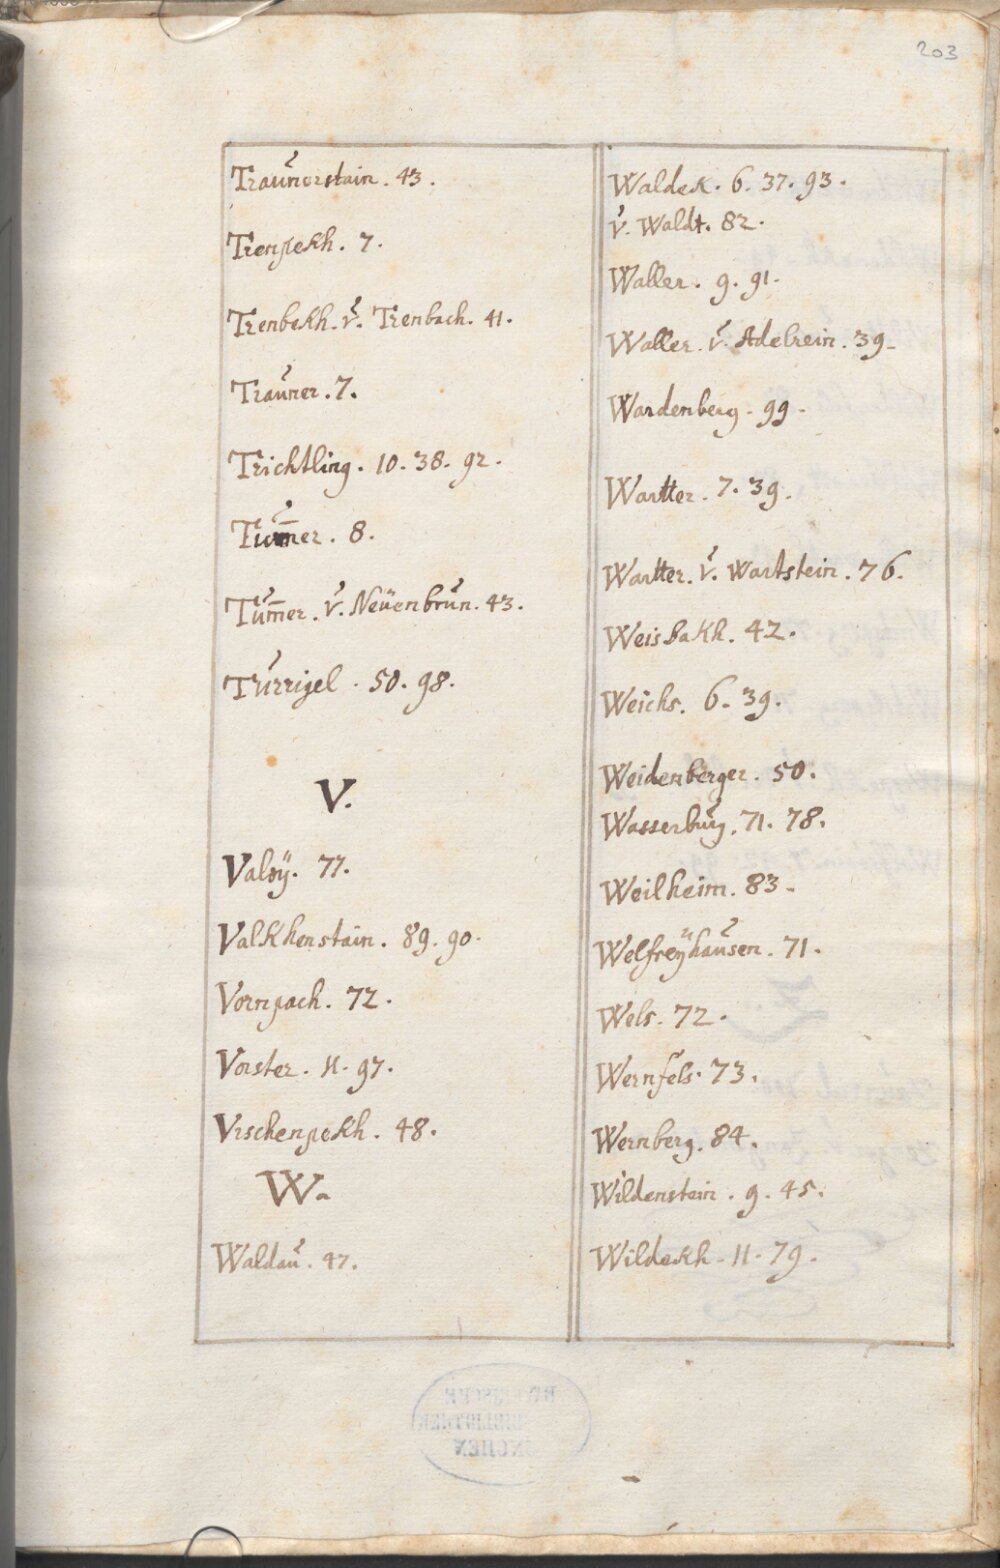 203
Traunerstain. 43.
Trenpekh. 7.
Trenbekh. v. Trenbach. 41.
Trauner. 7.
Trichtling. 10. 38. 92.
Tum̄er. 8.
Tum̄er. v. Neüenbrun. 43.
Türrigel. 50. 98.
V.
Valsÿ. 77.
Valkhenstain. 89. 90.
Vornpach. 72.
Vorster. 11. 97.
Vrschenpekh. 48.
W.
Waldau. 47.
Waldek. 6. 37. 93.
v. Waldt. 82.
Waller. 9. 91.
Waller. v. Adelrein. 39.
Wardenberg. 99.
Wartter. 7. 39.
Wartter. v. Wartstein. 76.
Weisbakh. 42.
Weichs. 6. 39.
Weidenberger. 50.
Wasserburg. 71. 78.
Weilheim. 83.
Welfreÿhausen. 71.
Wels. 72.
Wernfels. 73.
Wernberg. 84.
Wildenstein. 9. 45.
Wildekh. 11. 79.